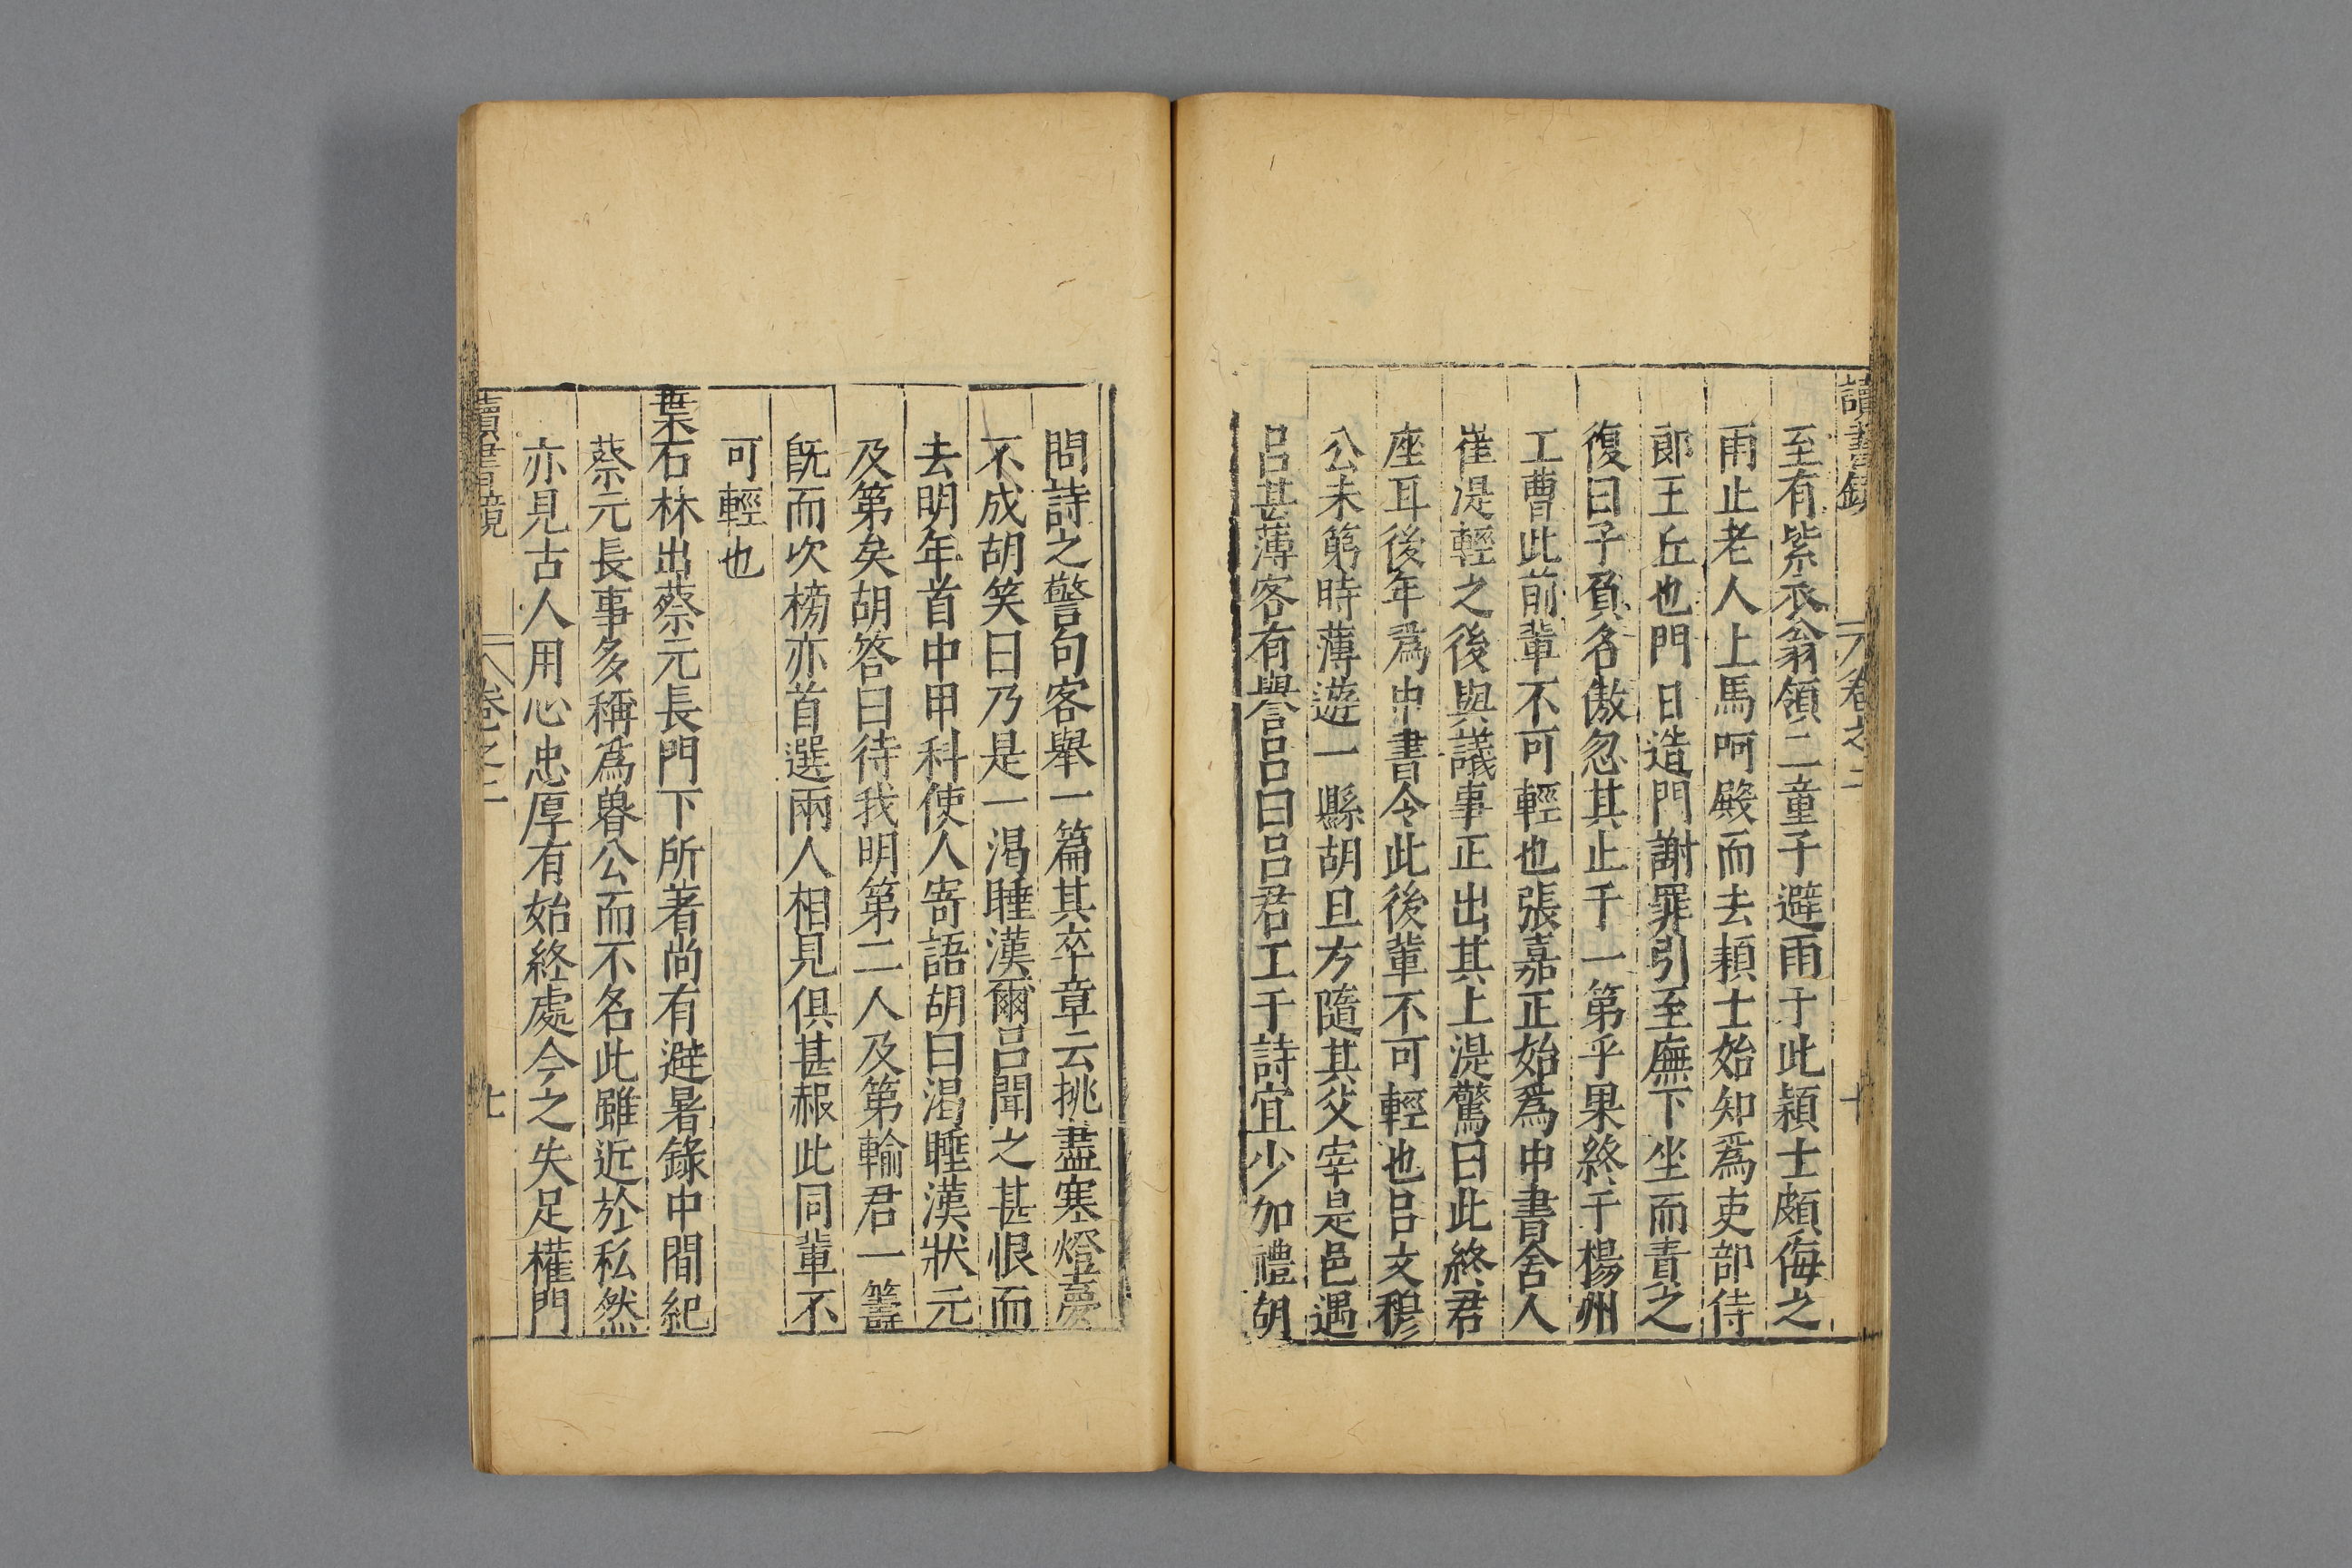 至有紫衣翁領二童子避雨于此穎士頗侮之
雨止老人上馬呵殿而去頴士始知爲吏部侍
郎王丘也門日造門謝罪引至廡下坐而責之
復曰子負名傲忽其止于一第乎果終于楊州
工曹此前輩不可輕也張嘉正始爲中書舍人
崔湜輕之後與議事正出其上湜驚曰此終君
座耳後年爲中書令此後輩不可輕也呂文穆
公未第時薄遊一縣胡旦方隨其父宰是邑遇
呂甚薄客有譽呂曰呂君工于詩宜少加禮胡
問詩之警句客舉一篇其卒章云挑盡寒燈夢
不成胡笑曰乃是一渴睡漢爾呂聞之甚恨而
去明年首中甲科使人寄語胡曰渴睡漢狀元
及第矣胡答曰待我明第二人及第輸君一籌
旣而次榜亦首選兩人相見俱甚赧此同輩不
可輕也
葉石林出蔡元長門下所著尚有避暑錄中間紀
蔡元長事多稱爲魯公而不名此雖近於私然
亦見古人用心忠厚有始終處今之失足權門
讀書鏡 卷之二